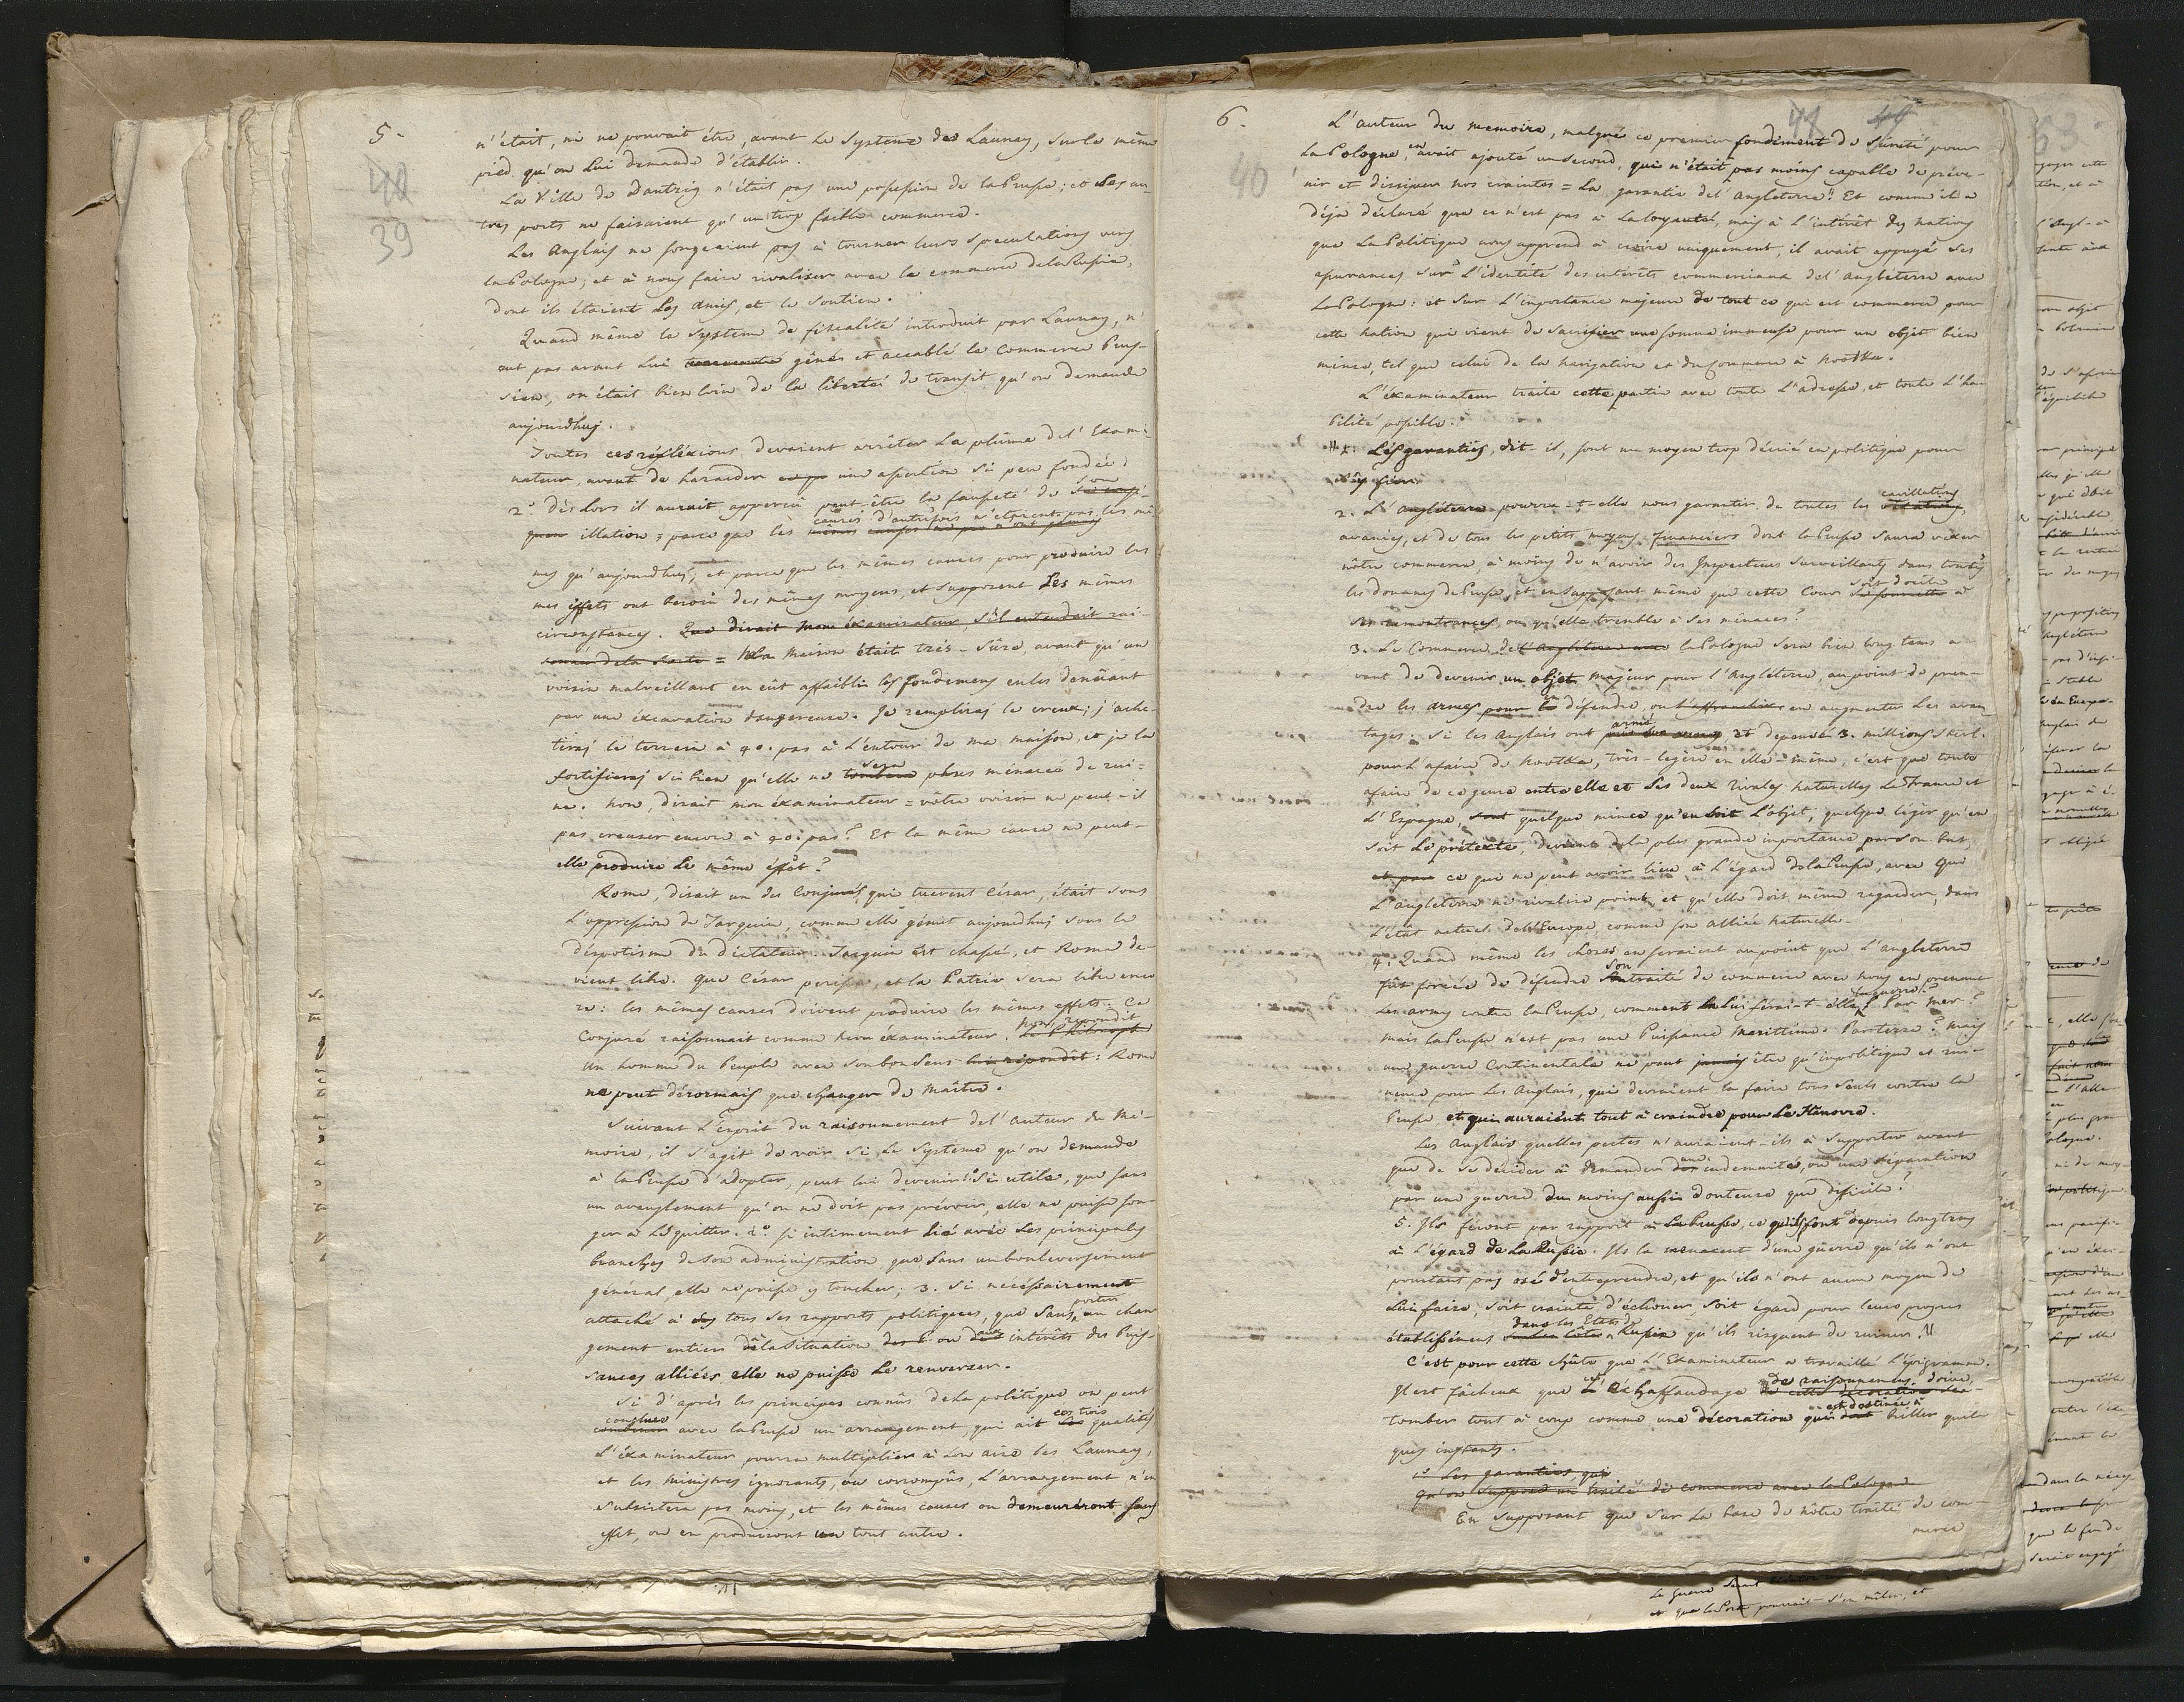 5.
40
39
n'était, ni ne pouvait être, avant le Systeme des Launay, sur le même
pied qu'on Lui demande d'établir.
La Ville de Dantzig n'était pas une possession de la Prusse; et Les au-
tres ports ne faisaient qu'un trop faible commerce.
Les Anglais ne songeaient pas à tourner leurs speculations vers
la Pologne; et à nous faire rivaliser avec le commerce de la Russie,
dont ils étaient Les amis, et le Soutien.
Quand même le Systeme de fiscalité introduit par Launay, n'
eut pas avant Lui gêné et accablé le Commerce Prus-
sien, on était bien loin de la liberté de transit qu'on demande
aujourdhuy.
Toutes ces réfléxions devaient arrêter La plûme del' Exami-
nateur, avant de hazarder une assertion si peu fondée;
2° dès Lors il aurait apperçu peut-être la fausseté de son
illation = parce que les causes d'autrefois n'étoient pas les mê-
mes qu'aujourdhuj, et parce que les mêmes causes pour produire les
mes effets ont besoin des mêmes moyens, et supposent Les mêmes
circonstances. Que dirait mon éxaminateur, s'il entendait rai-
sonner de la Sorte = Ma Maison était très-Sûre, avant qu'un
voisin malveillant en eût affaiblis les fondemens en les denüant
par une éxcavation dangereuse. Je rempliraj le creux; j'ache-
teraj le terrein à 40. pas à L'entour de ma maison, et je la
fortifieraj si bien qu'elle ne sera plus ménacée de rui-
ne. non, dirait mon éxaminateur = vôtre voisin ne peut-il
pas creuser encore à 40. pas? Et la même cause ne peut-
elle produire Le même éffêt?
Rome, disait un des Conjurés qui tuerent César, était sous
L'oppression de Tarquin, comme elle gémit aujourdhuj sous le
déspotisme du dictateur. Tarquin est chassé, et Rome de-
vient libre. que César perisse, et la Patrie sera libre enco
re: les mêmes causes doivent produire les mêmes effets. Ce
Conjuré raisonnait comme mon éxaminateur. Non, repondit
un homme du Peuple avec son bon sens lui répondit: Rome
ne peut désormais que changer de Maître.
Suivant L'esprit du raisonnement del' auteur du Mé-
moire, il s'agit de voir si Le Systeme qu'on demande
à la Prusse d'adopter, peut lui devenir 1° Si utile, que sans
un aveuglement qu'on ne doit pas prévoir, elle ne puisse son-
ger à Le quitter. 2° Si intimement lié avec Les principales
branches de son administration que sans un bouleversement
général, elle ne puisse y toucher; 3. Si necessairement
attaché à tous ses rapports politiques, que sans un chan
gement entier dela Situation ou des intérêts des Puis-
sances alliées elle ne puisse Le renverser.
Si d'après les principes connûs dela politique on peut
conclure avec la Prusse un arrangement, qui ait ces trois qualités
L'éxaminateur pourra multiplier à son aise les Launay,
et les Ministres ignorants, ou corrompûs, L'arrangement n'en
Subsistera pas moins, et les mêmes causes ou demeuréront sans
effet, ou en produiront un tout autre.
6.
40
L'auteur du memoire, malgré ce premier fondement de Sûreté pour
La Pologne, en avait ajouté un second, qui n'était pas moins capable de préve-
nir et dissiper nos craintes = La garantie del' Angleterre. Et comme il a
déja déclaré que ce n'est pas à La loyauté, mais à l'intérêt des nations
que La Politique nous apprend à croire uniquement, il avait appuyé ses
assurances sur L'identité des intérêts commerciaux del' Angleterre avec
La Pologne: et sur L'importance majeure de tout ce qui est commerce pour
cette nation qui vient de Sacrifier une somme immense pour un objet bien
mince, tel que celui de la navigation et du Commerce à Nootka.
L'éxaminateur traite cette partie avec toute L'adresse, et toute L'ha-
bilité possible.
1. Lés garanties, dit-il, sont un moyen trop décrié en politique pour
s'y fier.
2. L'Angléterre pourra-t-elle nous garantir de toutes les cavillations
avanies, et de tous les petits moyens financiers dont la Prusse saura vexer
nôtre commerce, à moins de n'avoir des Inspecteurs Surveillants dans toutes
les douanes de Prusse, et en supposant même que cette Cour soit docile à
ses remontrances, ou qu'elle tremble à ses ménaces?
3. Le Commerce de la Pologne sera bien longtems a-
vant de devenir un objet majeur pour l'Angléterre, au point de pren-
dre les armes pour le défendre, ou en augmenter Les avan
tages. Si les Anglais ont armé, et depensé 3. millions Sterl.
pour L'afaire de Nootka, très-legère en elle-même, c'est que toute
afaire de ce genre entre elle et Ses deux rivales naturelles La France et
L'Espagne, quelque mince qu'en soit L'objet, quelque léger qu'en
soit Le prétexte, devient dela plus grande importance par son but
ce qui ne peut avoir lieu à L'égard dela Prusse, avec que
L'angléterre ne rivalise point, et qu'elle doit même regarder, dans
L'état actuel del'Europe, comme son alliée naturelle.
4. Quand même les choses en seraient au point que L'angleterre
fût forcée de défendre Son traité de commerce avec nous en prenant
Les armes contre la Prusse, comment la Lui férai-t-elle la guerre? Par Mer?
mais la Prusse n'est pas une Puissance Maritime. Par terre? mais
une guerre Continentale ne peut jamais être qu'impolitique et rui-
neuse pour Les Anglais, qui devraient la faire tous seuls contre la
Prusse et qui auraient tout à craindre pour Le Hanovre.
Les Anglais quelles pertes n'auraient-ils à Supporter avant
que de se décider à demander une indemnité, ou une réparation
par une guerre du moins aussi douteuse que dificile?
5. Ils féront par rapport à La Prusse, ce qu'ils font depuis longtems
à L'égard de La Russie. Ils la menacent d'une guerre qu'ils n'ont
pourtant pas osé d'entreprendre, et qu'ils n'ont aucun moyen de
Lui faire, soit crainte d'échouer, soit égard pour leurs propres
établissémens dans les Etats de Russie qu'ils risquent de ruiner.
C'est pour cette chûte que L'Examinateur a travaillé L'épigramme.
Il est fâcheux que cet échaffaudage de raisonnemens doive,
tomber tout à coup comme une décoration qui est destinée à briller quel-
ques instants.
1° Les garanties, que
qu'on suppose un traité de commerce avec la Pologne
En Supposant que sur La base de nôtre traité de com-
merce